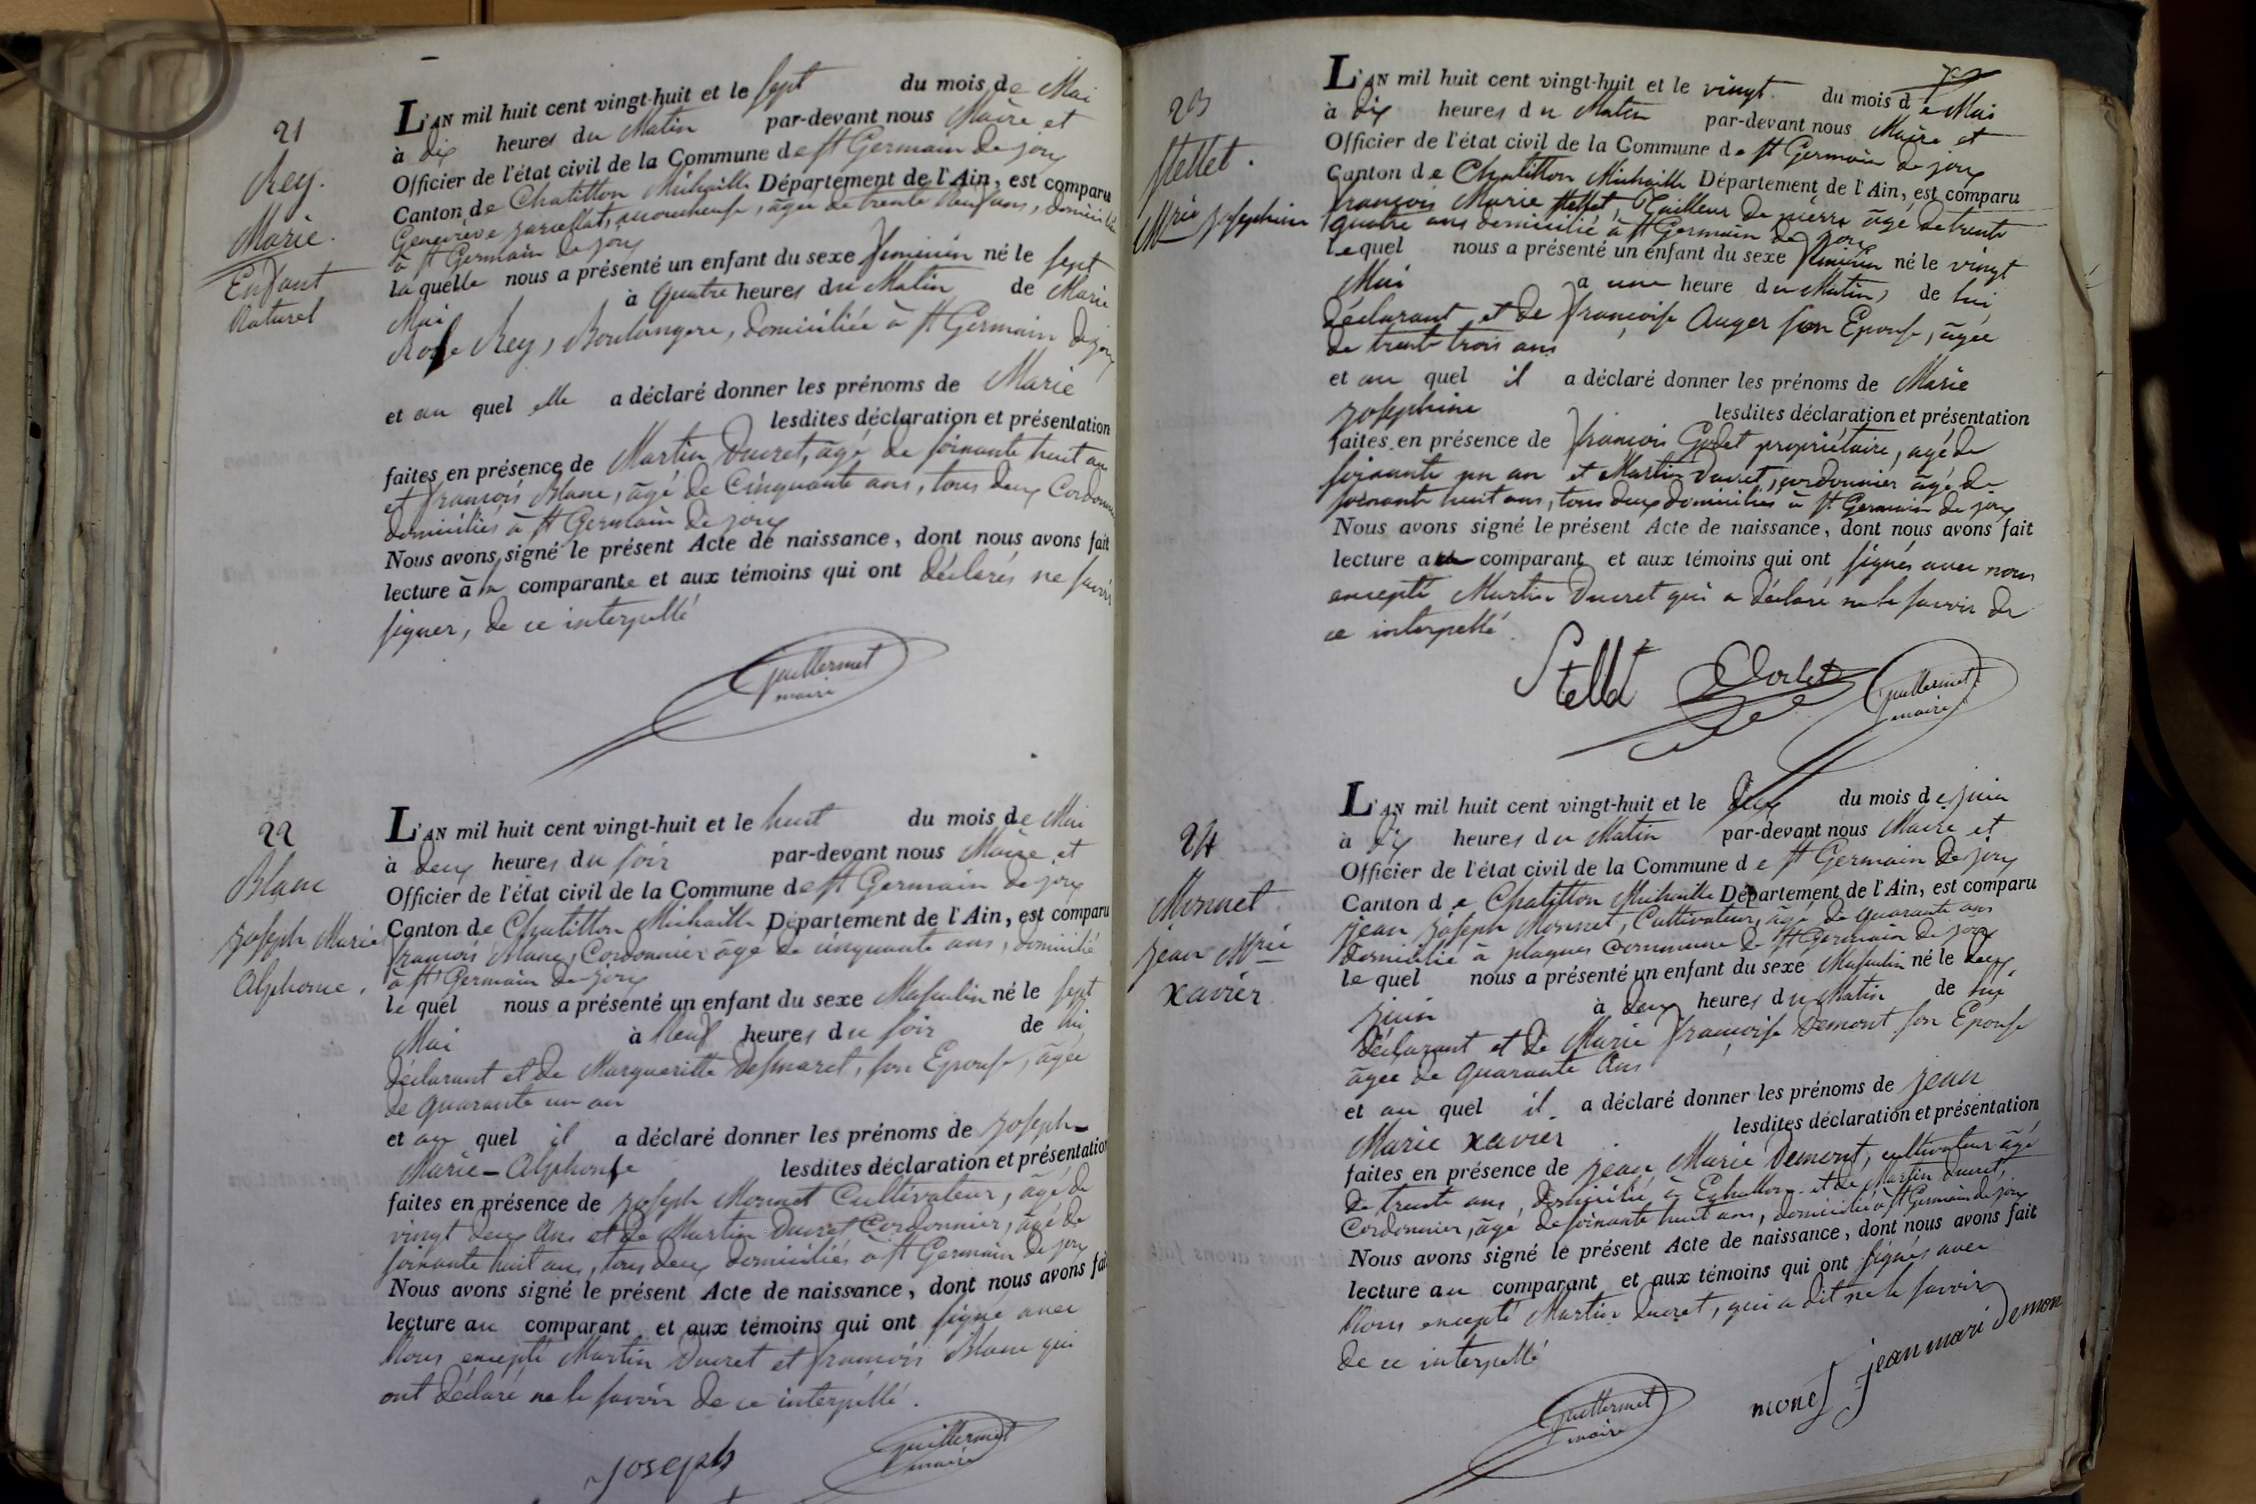 21
Rey.
Marie.
Enfant
Naturel
L'AN mil huit cent vingt-huit et le sept du mois de Mai
à dix heures du Matin par-devant nous Maire et
Officier de l'état civil de la Commune de St Germain de joux
Canton de Chatillon Michaille Département de l'Ain, est comparu
Geneviève accoucheuse, agée de trente neuf ans, domiciliée
à St Germain de joux
laquelle nous a présenté un enfant du sexe feminin né le sept
Mai à quatre heures du Matin de Marie
Rose Rey, Boulangere, domiciliée à St Germain de joux
et au quel elle a déclaré donner les prénoms de Marie
lesdites déclaration et présentation
faites en présence de Martin Ducret, agé de soixante huit ans
et françois Blanc, âgé de Cinquante ans, tous deux Cordonniers
domiciliés à St Germain de joux
Nous avons signé le présent Acte de naissance, dont nous avons fait
lecture à la comparante et aux témoins qui ont déclarés ne savoir
signer, de ce interpellé
Guillermet
maire
22
Blanc
joseph Marie
Alphonse.
L'AN mil huit cent vingt-huit et le huit du mois de Mai
à deux heures du soir par-devant nous Maire et
Officier de l'état civil de la Commune de St Germain de joux
Canton de Chatillon Michaille Département de l'Ain, est comparu
françois Blanc, Cordonnier âgé de cinquante ans, domicilié
à St Germain de joux
le quel nous a présenté un enfant du sexe Masculin né le sept
Mai à Neuf heures du soir de lui
déclarant et de Margueritte Desmaret, son Epouse, âgée
de quarante un an
et au quel il a déclaré donner les prénoms de joseph-
Marie-Alphonse lesdites déclaration et présentation
faites en présence de joseph Monnet Cultivateur, âgé de
vingt deux ans et de Martin Ducret Cordonnier, âgé de
soixante huit ans, tous deux domiciliés à St Germain de joux
Nous avons signé le présent Acte de naissance, dont nous avons fait
lecture au comparant et aux témoins qui ont signé avec
Nous excepté Martin Ducret et françois Blanc qui
ont déclaré ne le savoir de ce interpellé.
joseph
Guillermet
maire
23
Stellet.
Mrie josephine
L'AN mil huit cent vingt-huit et le vingt du mois de Mai
à dix heures du Matin par-devant nous Maire et
Officier de l'état civil de la Commune de St Germain de joux
Canton de Chatillon Michaille Département de l'Ain, est comparu
françois Marie Stellet, Tailleur de pierre âgé de trente
quatre ans domicilié à St Germain de joux
lequel nous a présenté un enfant du sexe feminin né le vingt
Mai à une heure du Matin, de lui
déclarant et de françoise Auger son Epouse, âgée
de trente trois ans
et au quel il a déclaré donner les prénoms de Marie
josephine lesdites déclaration et présentation
faites en présence de françois Godet propriétaire, agé de
soixante un an et Martin Ducret, cordonnier âgé de
soixante huit ans, tous deux domiciliés à St Germain de joux
Nous avons signé le présent Acte de naissance, dont nous avons fait
lecture au comparant et aux témoins qui ont signés avec nous
excepté Martin Ducret qui a déclaré ne le savoir de
ce interpellé.
Stellet
Guillermet
maire
24
Monnet
jean Mrie
xavier
L'AN mil huit cent vingt-huit et le deux du mois de juin
à dix heures du Matin par-devant nous Maire et
Officier de l'état civil de la Commune de St Germain de joux
Canton de Chatillon Michaille Département de l'Ain, est comparu
jean joseph Monnet, Cultivateur, âgé de quarante ans
domicilié à plagnes commune de St Germain de joux
le quel nous a présenté un enfant du sexe Masculin né le deux
juin à deux heures du Matin de lui
déclarant et de Marie françoise Demont son Epouse
âgée de quarante Ans
et au quel il a déclaré donner les prénoms de jean
Marie xavier lesdites déclaration et présentation
faites en présence de jean Marie Demont, cultivateur âgé
de trente ans, domicilié à Echallon et de Martin Ducret,
Cordonnier, âgé de soixante huit ans, domicilié à St Germain de joux
Nous avons signé le présent Acte de naissance, dont nous avons fait
lecture au comparant et aux témoins qui ont signés avec
Nous excepté Martin Ducret, qui a dit ne le savoir
de ce interpellé
jean mari demon
Guillermet
maire